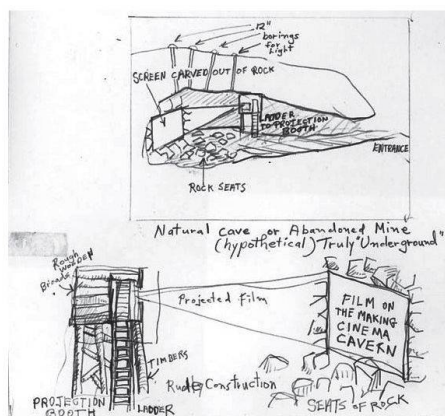 12"
borings
for
light
SCREEN CARVED OUT OF ROCK
LADDER
TO PROJECTION
BOOTH
ENTRANCE
ROCK SEATS
Natural cave or Abandoned Mine
(hypothetical) Truly "Underground"
Rough
WOODEN
Projected Film
FILM ON
THE MAKING
CINEMA
CAVERN
TIMBERS
Rude Construction
PROJECTION
BOOTH
LADDER
SEATS OF ROCK